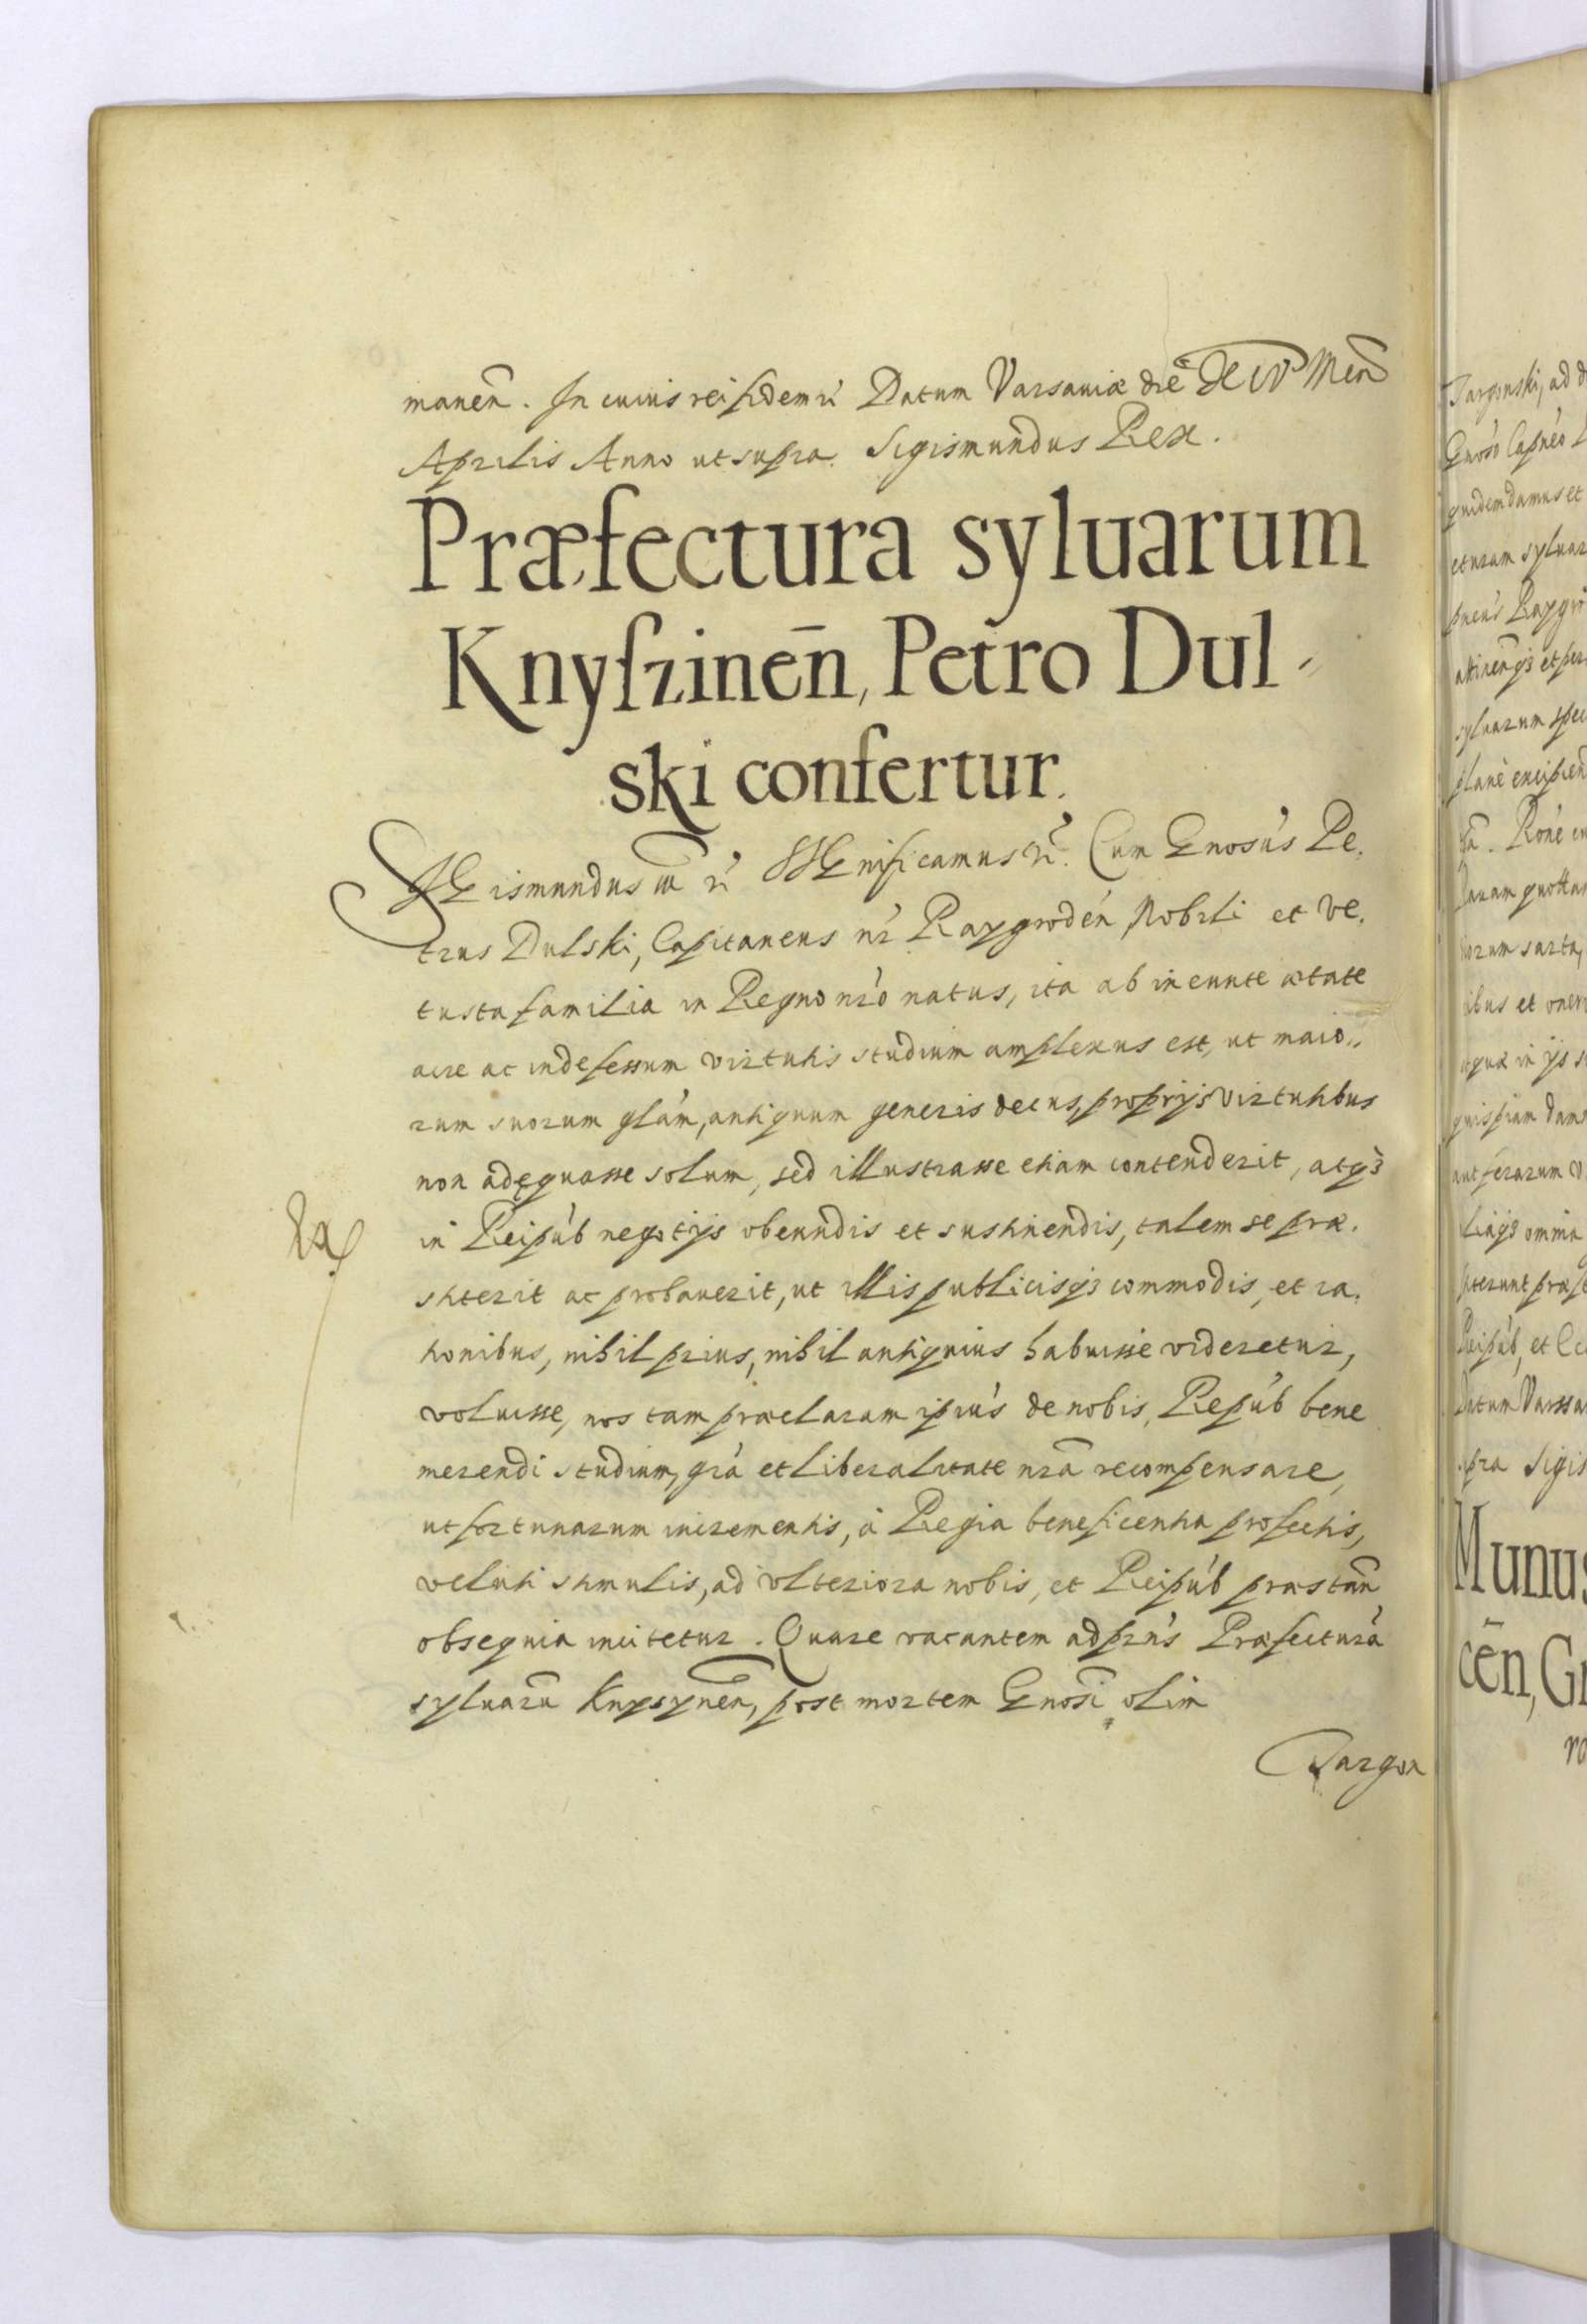 manen̄. In cuius rei fidem rc̃ Datum Varsauiæ die XIV Men̄
Aprilis Anno ut supra. Sigismundus Rex.
Præfectura syluarum
Knyſzinen̄, Petro Dul-
ski confertur.
SIGismundus III rc̃ SIGnificamus rc̃. Cum Gnosús Pe-
trus Dulski, Capitaneus nr̃ Raygrodén Nobili et ve-
tusta familia in Regno nr̃o natus, ita ab ineunte ætate
acre ac indefessum virtutis studium amplexus est, ut maio-
rum suorum glám, antiquum generis decus, proprijs virtutibus
non adęquasse solum, sed illustrasse etiam contenderit, atqȝ
in Reipúb negotijs obeundis et sustinendis, talem se præ-
stiterit ac probauerit, ut illis publicisqȝ commodis, et ra-
tionibus, nihil prius, nihil antiquius habuisse videretur,
voluisse, nos tam præclarum ipiús de nobis, Repúb bene
merendi studium, grá et liberalitate nr̃a recompensare,
ut fortunarum incrementis, à Regia beneficentia profectis,
veluti stimulis, ad vlteriora nobis, et Reipúb præstan̄
obsequia incitetur. Quare vacantem ad prńs Præfecturá
syluarū Knysynen̄, post mortem Gnosi olim
Targon
Targonski, ad d
Gnósó Capnéó
quidem damus et
cturam syluar
pneus Raygro
attinen̄qȝ et per
syluarum spec
plané excipien̄
Roné
quottan
iorum sarta,
ibus et oner
quæ in ijs s
quispiam dam
aut ferarum v
omnia
Reipúb, et
Datum Varssa
pra Sigis
Munus
cen̄, Gn